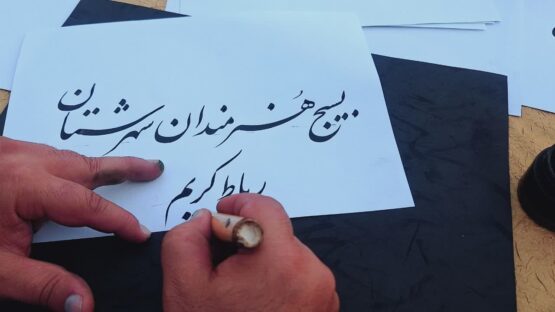 بسیج هنرمندان شهرستان
رباط کریم